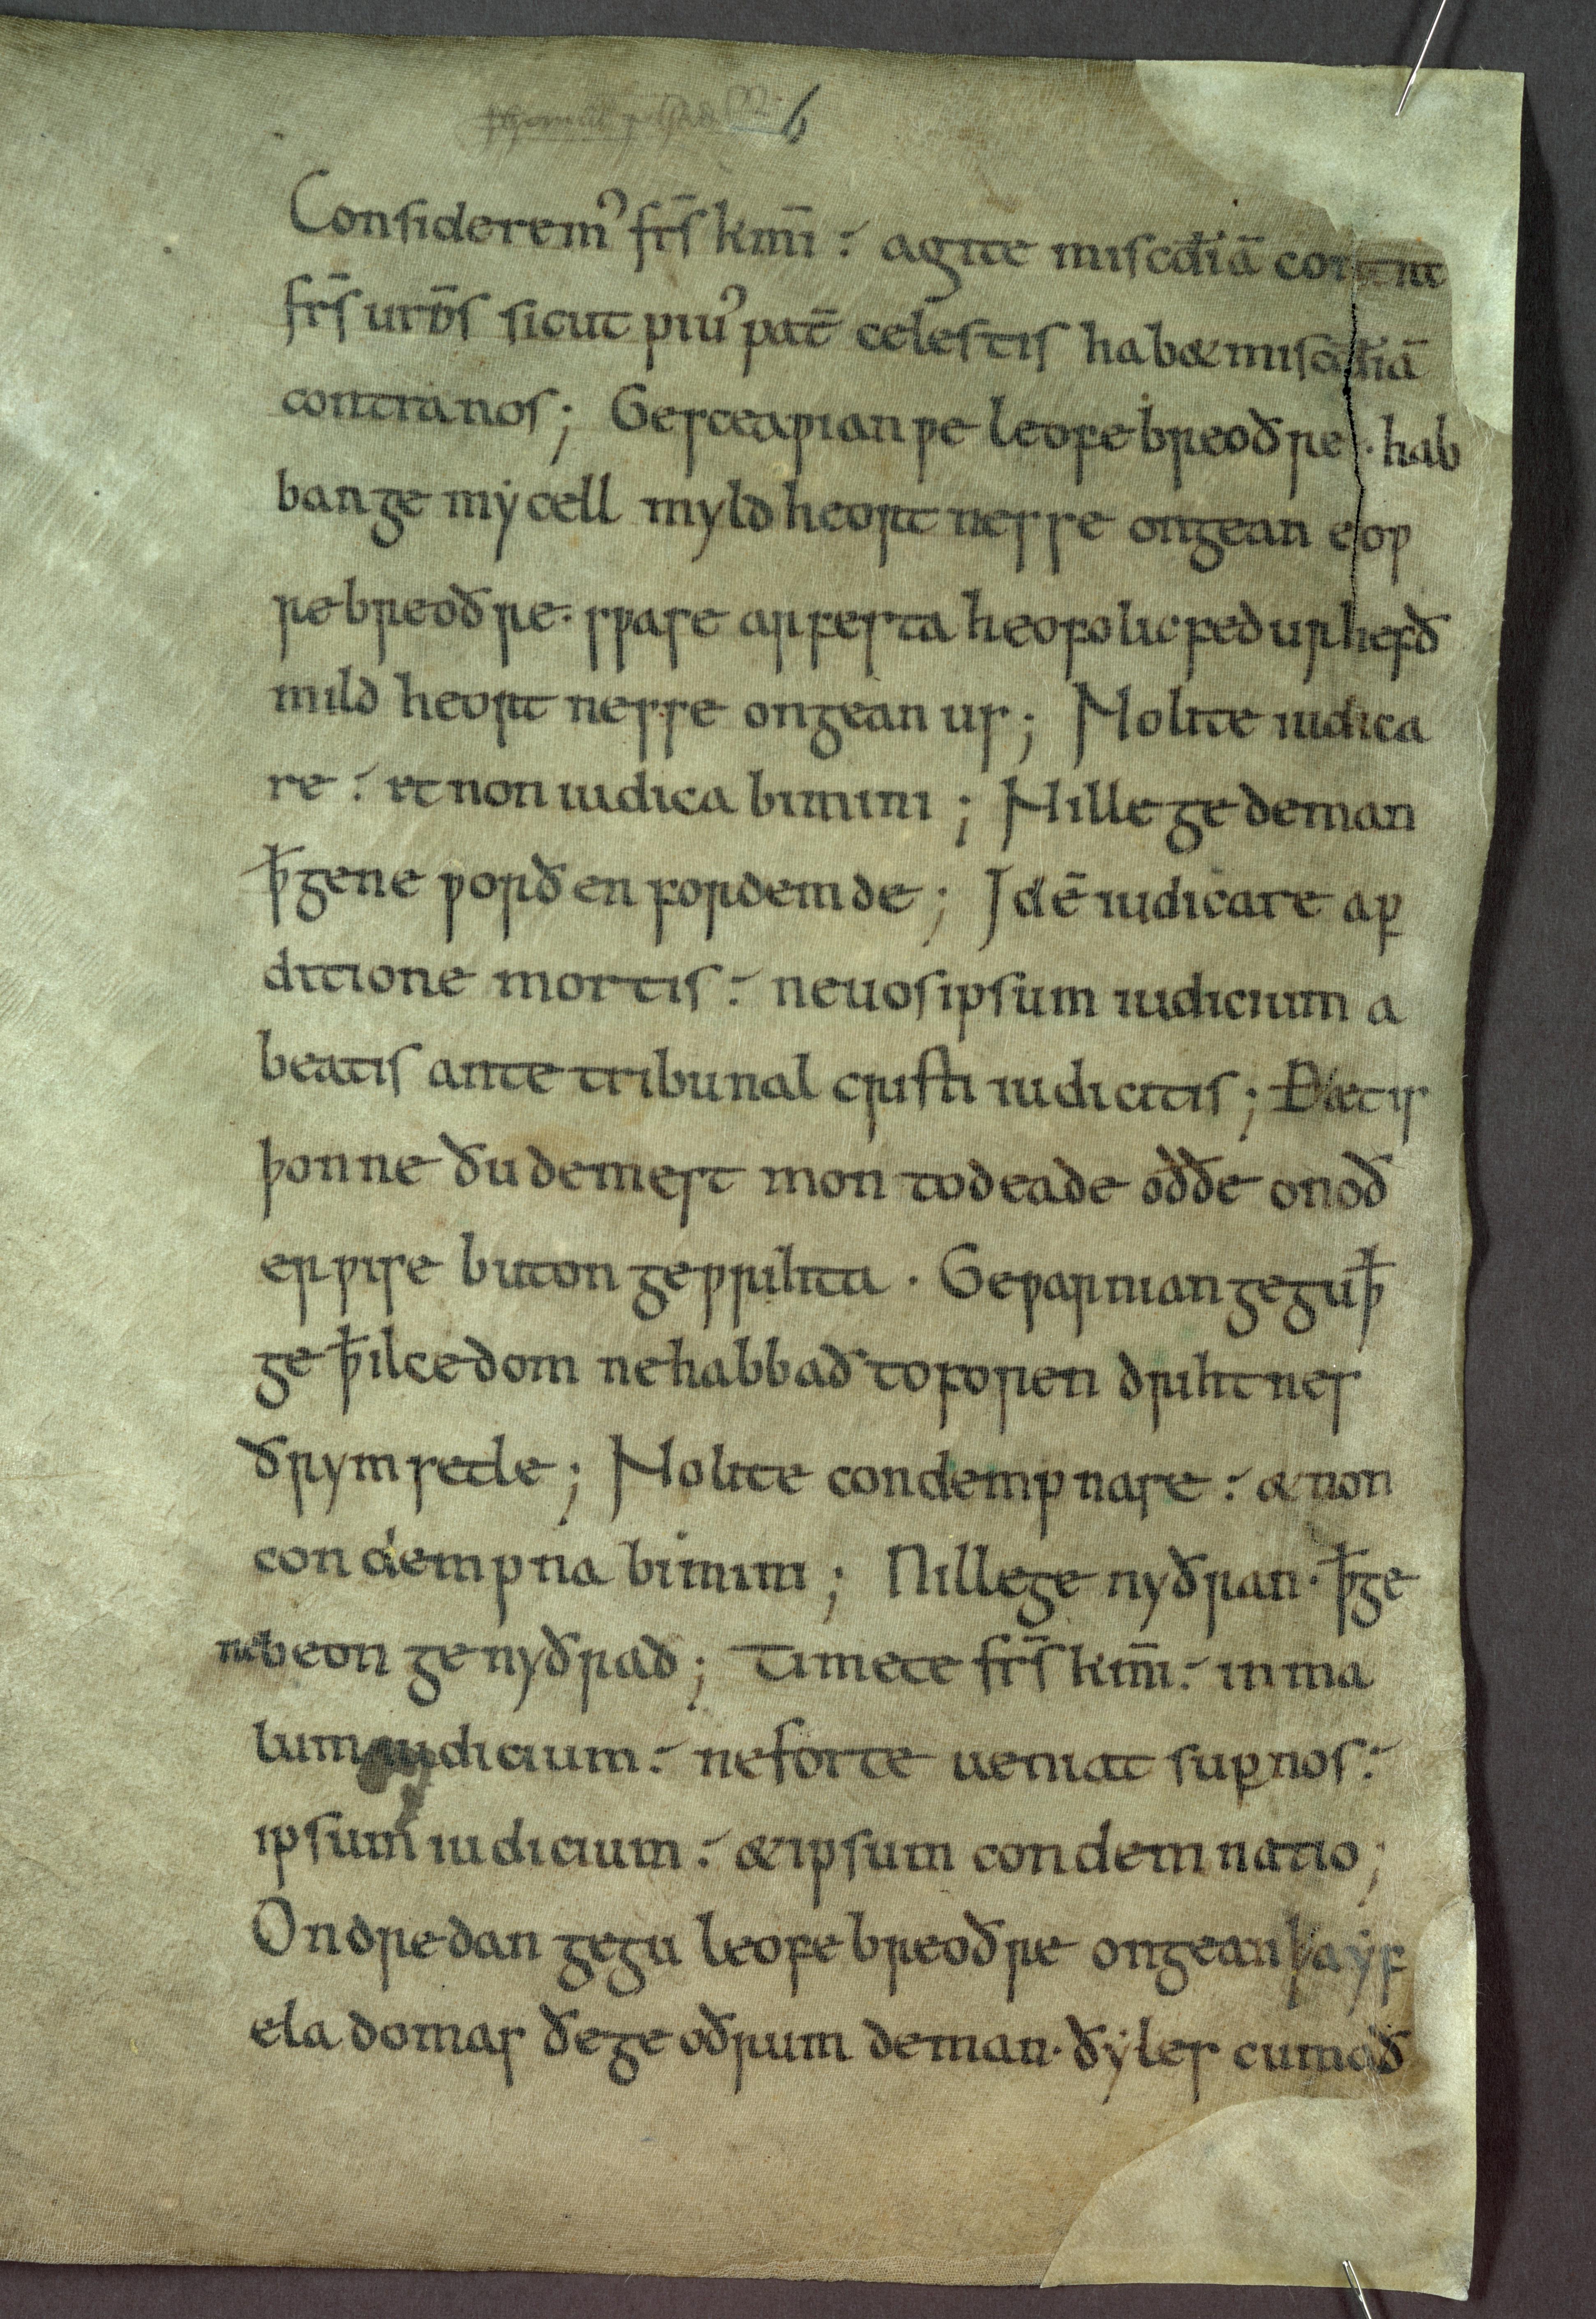 6
Considerem᾽ fr̄s km̄i : agite miscd̄iā contnt
fr̄s urīs sicut piu᾽ pat̄ celestis habet miscd̄iā
contra nos; Gesceaƿian ƿe leofe breoðre · hab
ban ge mẏcell myldheortnesse ongean eoƿ
re breoðre · sƿase arfesta heofolic feður hefð
mildheortnesse ongean us; Nolite iudica
re : et non iudicabimini ; Nille ge deman
ꝥ ge ne ƿorðen fordemde ; Id ē iudicare a ꝑ
ditione mortis : ne uos ipsum iudicium a
beatis ante tribunal cristi iudicitis ; Ðæt is
þonne ðu demest mon to deade oððe on oð
er ƿise buton geƿrihta · Geƿarnian ge gu ꝥ
ge ꝥ ilce dom ne habbað toforen drihtnes
ðrymsetle ; Nolite condempnare : & non
condempnabimini ; Nille ge nyðran · ꝥ ge
ne beon genyðrad ; Timete fr̄s km̄i : in ma
lum iudicium : ne forte ueniat suꝑ nos :
ipsum iudicium : & ipsum condemnatio ;
Ondredan ge gu leofe breoðre ongean þa ẏf
ela domas ðe ge oðrum deman · ðẏ les cumað